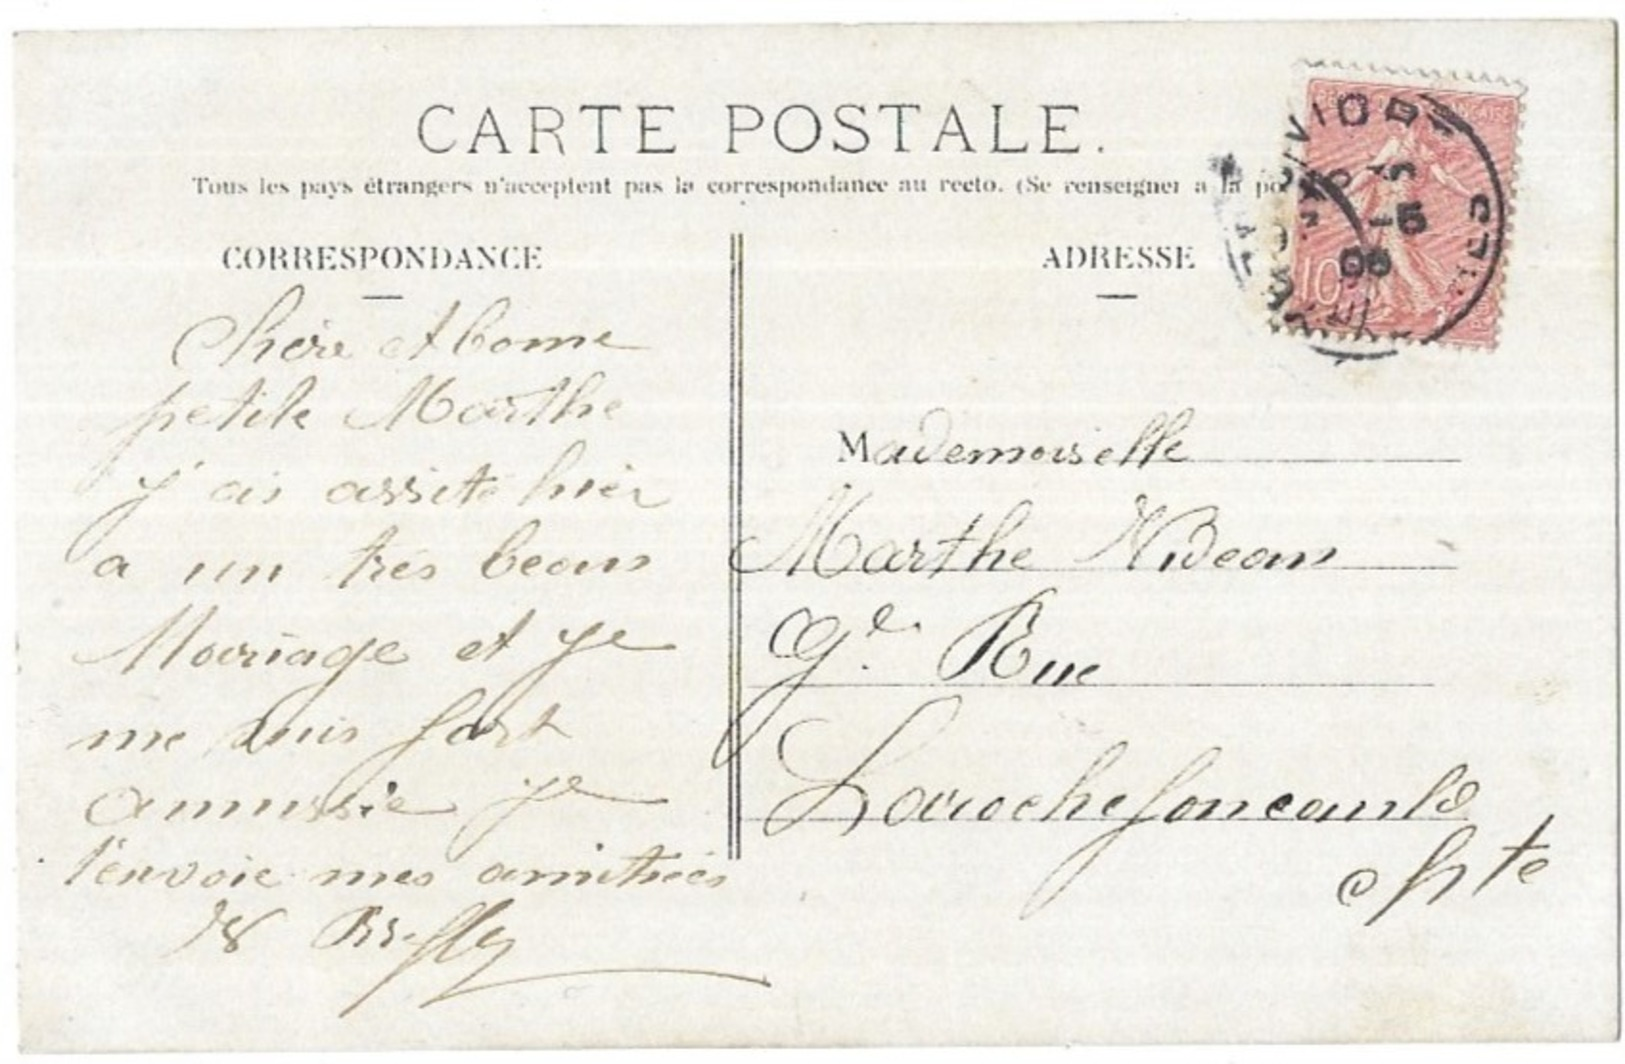 CARTE POSTALE.
Tous les pays étrangers n'acceptent pas la correspondance au recto. (Se renseigner a la po
CORRESPONDANCE
Chère et bonne
petite Marthe
j'ai assité hier
a un très beau
Mariage et je
me suis fort
amusée je
t'envoie mes amitiés
ADRESSE
Mademoiselle
Marthe Nideau
Gde Rue
Larochefoucauld
Chte
10
-5
06